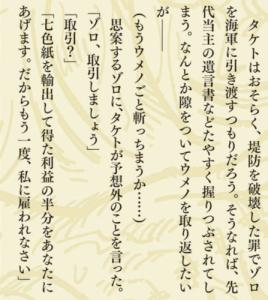 タケトはおそらく、堤防を破壊した罪でゾロ
を海軍に引き渡すつもりだろう。そうなれば、先
代当主の遺言書などたやすく握りつぶされてし
まう。なんとか隙をついてウメノを取り返したい
が――
（もうウメノごと斬っちまうか……）
　思案するゾロに、タケトが予想外のことを言った。
「ゾロ、取引しましょう」
「取引？」
「七色紙を輸出して得た利益の半分をあなたに
あげます。だからもう一度、私に雇われなさい」